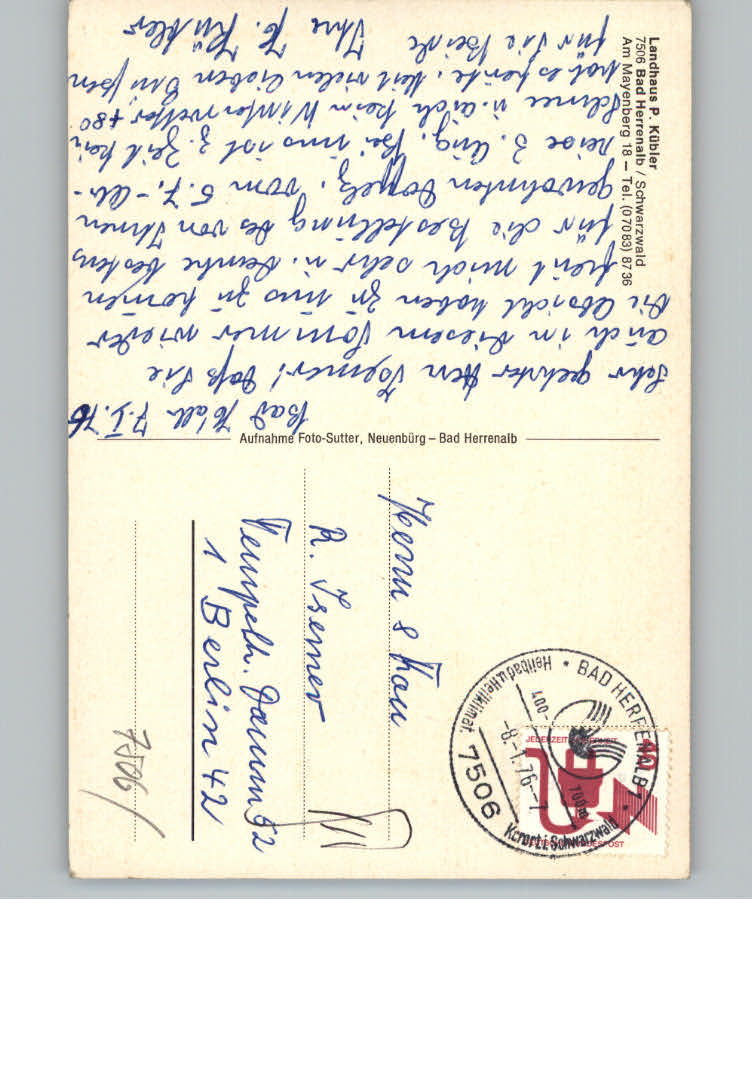 Landhaus P. Kübler
7506 Bad Herrenalb / Schwarzwald
Am Mayenberg 18 – Tel. (07083) 8736
Bad H'alb 7.I.76
Sehr geehrter Herr Isemer! Daß Sie
auch in diesem Sommer wieder
die Absicht haben zu uns zu komen
freut mich sehr u. danke bestens
für die Bestellung des von Ihnen
gewohnten Doppelz. vom 5.7.-Ab-
reise 3. Aug. Bei uns ist z. Zeit kein
Schnee u. auch kein Winterwetter +8°
hat es heute. Mit vielen lieben Grüßen
für Sie Beide Ihre K. Kübler
Aufnahme Foto-Sutter, Neuenbürg – Bad Herrenalb
Herrn & Frau
R. Isemer
Tempelh. Damm 52
1 Berlin 42
7506/
BAD HERRENALB 1
Heilbad u. Heilklimat.
Kurort i. Schwarzwald
7506
-8.-1.76--7
400-
700m
JEDERZEIT SICHERHEIT
40
DEUTSCHE BUNDESPOST